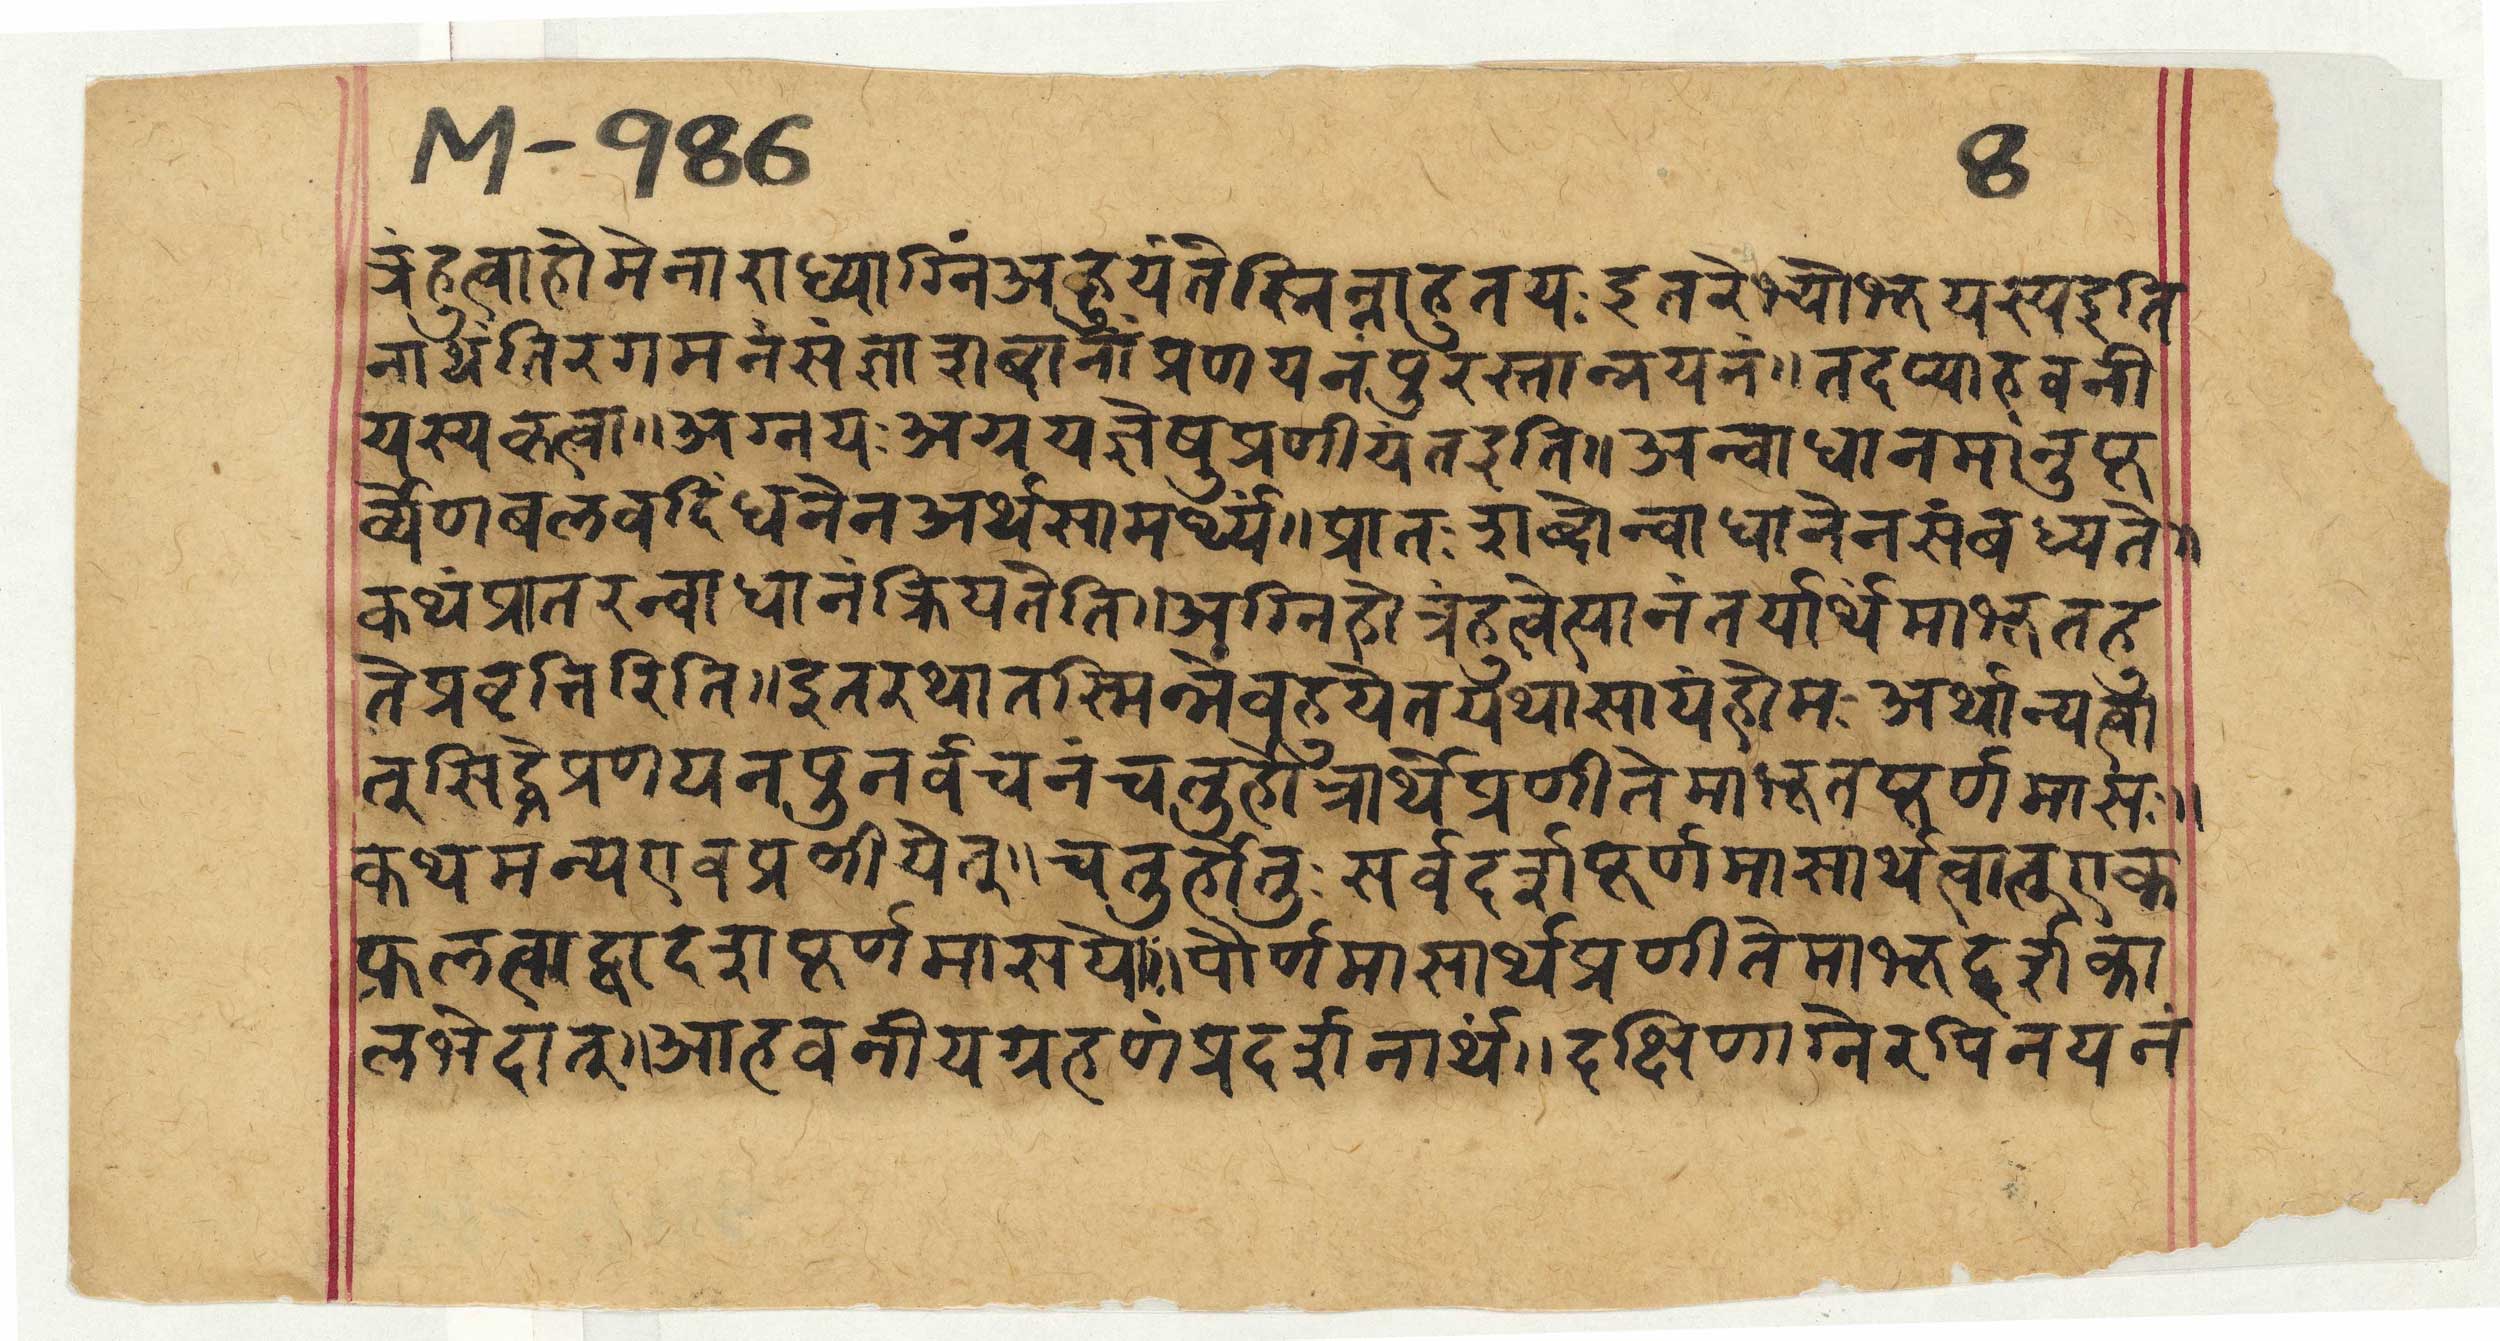 M-986 8
त्रंहुत्वाहोमेनाराध्याग्निंअहूयंतेस्निन्नाहुतयःइतरेभ्योभूयस्यइति
नार्थंतिरगमनंसंज्ञाशब्दानांप्रणयनंपुरस्तान्नयनं॥तदप्याहवनी
यस्यकृत्वा॥अग्नयःअग्रयज्ञेषुप्रणीयंतइति॥अन्वाधानमांनुपू
र्व्येणबलवदिंधनेनअर्थसामर्थ्यं॥प्रातःशब्दोन्वाधानेनसंबध्यते॥
कथंप्रातरन्वाधानंक्रियतेति॥अग्निहोत्रंहुत्वेत्यानंतर्यार्थंमाभूतहु
तेप्रवृत्तिरिति॥इतरथातस्मिन्नेवहूयेतयथासायंहोमःअर्थान्यत्वा
त्तुसिद्धेप्रणयनपुनर्वचनंचतुर्होत्रार्थेप्रणीतेमाभूतपूर्णमासः॥
कथमन्यएवप्रणीयेत्॥चतुर्होतुःसर्वदर्शपूर्णमासार्थत्वात्एक
फलत्वाद्वादर्शपूर्णमासयोः॥पौर्णमासार्थप्रणीतेमाभूद्दर्शका
लभेदात्॥आहवनीयग्रहणंप्रदर्शनार्थं॥दक्षिणाग्नेरपिनयनं